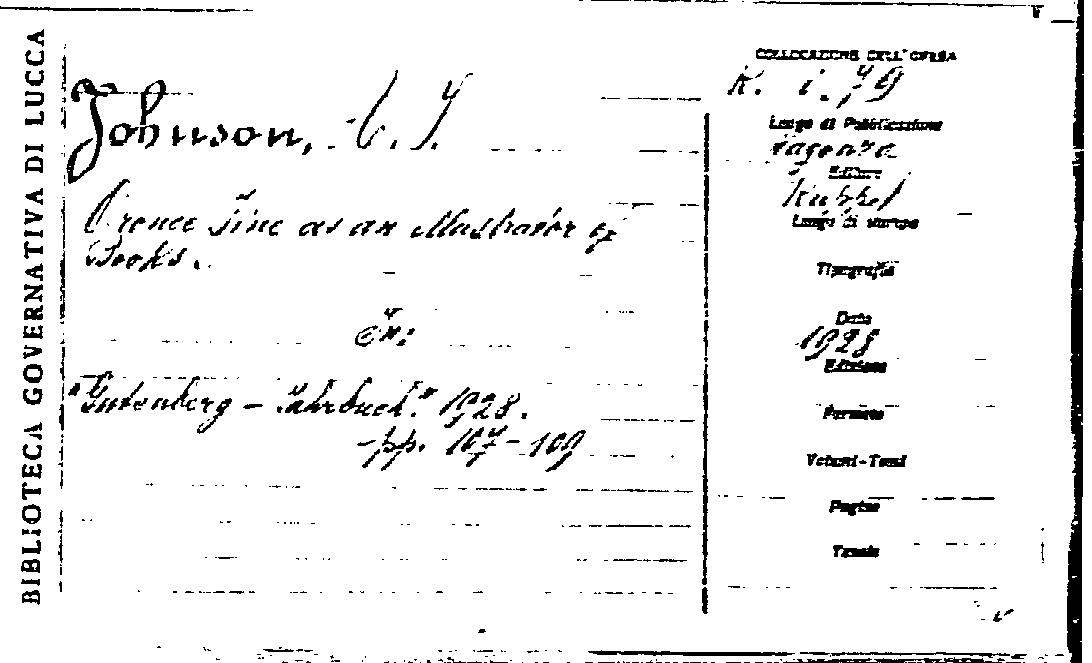 BIBLIOTECA GOVERNATIVA DI LUCCA
Johnson, A. F.
Oronce Fine as an illustrator of
Books.
In:
"Gutenberg - Jahrbuch" 1928.
pp. 107-109
COLLOCAZIONE DELL'OPERA
K. i. 79
Luogo di Pubblicazione
Magonza
Editore
Ruppel
Luogo di stampa
Tipografia
Data
1928
Edizione
Formato
Volumi-Tomi
Pagine
Tavole